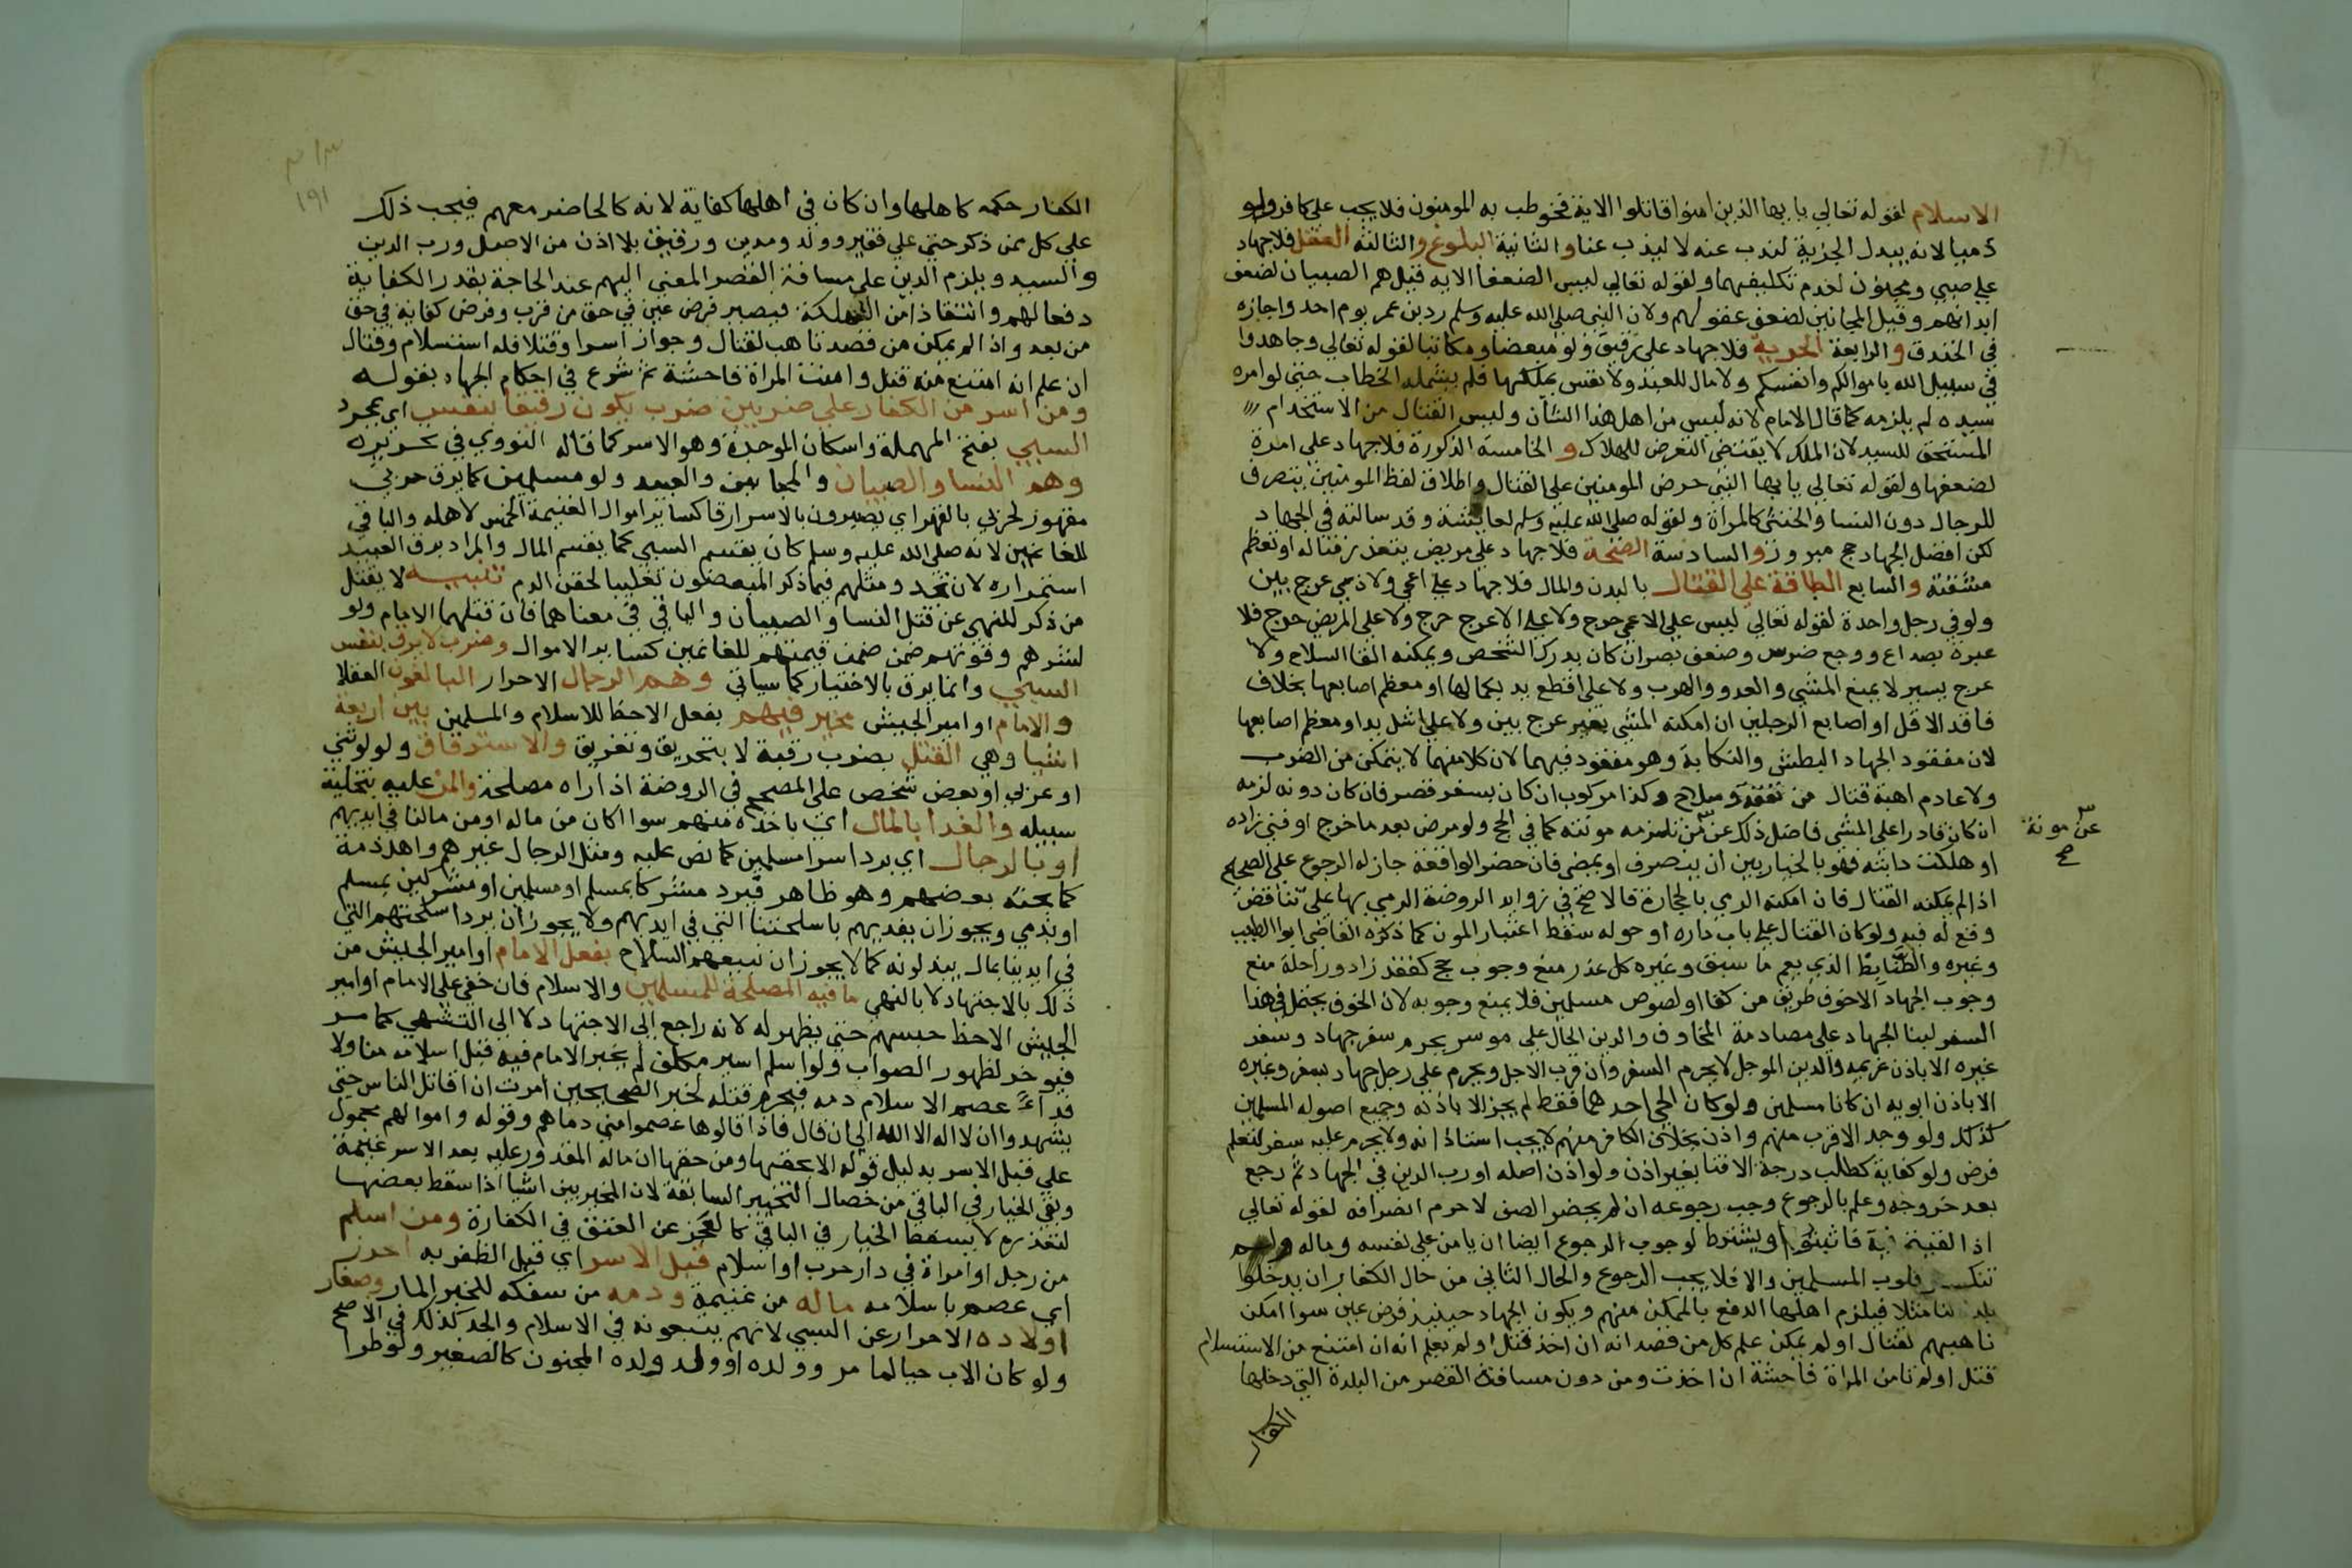 الاسلام لقوله تعالي يا ايها الذين امنوا قاتلوا الاية فخوطب به المومنون فلا يجب علي كافر ولو
ذميا لانه يبدل الجزية لنذب عنه لا ليذب عنا والثانية البلوغ والثالثة العقل فلا جهاد
علي صبي ومجنون لعدم تكليفهما ولقوله تعالي ليس الضعفا الاية قيل هم الصبيان لضعف
ابدانهم وقيل المجانين لضعف عقولهم ولان النبي صلي الله عليه وسلم رد بن عمر يوم احد واجازه
في الخندق والرابعة الحرية فلا جهاد علي رقيق ولو مبعضا ومكاتبا لقوله تعالي وجاهدوا
في سبيل الله باموالكم وانفسكم ولا مال للعبد ولا نفس يملكها فلم يشمله الخطاب حتي لو امره
سيده لم يلزمه كما قال الامام لانه ليس من اهل هذا الشان وليس القتال من الاستخدام
المستحق للسيد لان الملك لا يقتضي التعرض للهلاك و الخامسة الذكورة فلا جهاد علي امراة
لضعفها ولقوله تعالي يا ايها النبي حرض المومنين علي القتال واطلاق لفظ المومنين ينصرف
للرجال دون النسا والخنثي كالمراة ولقوله صلي الله عليه وسلم لعايشة وقد سالته في الجهاد
لكن افضل الجهاد حج مبرور والسادسة الصحة فلا جهاد علي مريض يتعذر قتاله او تعظم
مشقته والسابع الطاقة علي القتال بالبدن والمال فلا جهاد علي اعمي ولا ذي عرج بين
ولو في رجل واحدة لقوله تعالي ليس علي الاعمي حرج ولا علي الاعرج حرج ولا علي المريض حرج فلا
عبرة بصداع ووجع ضرس وضعف بصر ان كان يدرك الشخص ويمكنه اتقا السلاح ولا
عرج يسير لا يمنع المشي والعدو والهرب ولا علي اقطع يد بكمالها او معظم اصابعها بخلاف
فاقد الاقل او اصابع الرجلين ان امكنه المشي بغير عرج بين ولا علي اشل يد او معظم اصابعها
لان مقصود الجهاد البطش والنكاية وهو مفقود فيهما لان كلا منهما لا يتمكن من الضرب
ولا عادم اهبة قتال من نفقة وسلاح وكذا مركوب ان كان سفر قصر فان كان دونه لزمه
ان كان قادرا علي المشي فاضل ذلك عن من تلزمه مونته كما في الحج ولو مرض بعد ما خرج او فني زاده
عن مونة
صح
او هلكت دابته فهو بالخيار بين ان ينصرف او يمضي فان حضر الواقعة جاز له الرجوع علي الصحيح
اذا لم يمكنه القتال فان امكنه الرمي بالحجارة فالاصح في زوايد الروضة الرمي بها علي تناقض
وقع له فيه ولو كان القتال علي باب داره او حوله سقط اعتبار المون كما ذكره القاضي ابو الطيب
وغيره والضابط الذي يعم ما سبق وغيره كل عذر منع وجوب حج كفقد زاد وراحلة منع
وجوب الجهاد الا خوف طريق من كفار او لصوص مسلمين فلا يمنع وجوبه لان الخوف يحتمل في هذا
السفر لبنا الجهاد علي مصادمة المخاوف والدين الحال علي موسر يحرم سفر جهاد وسفر
غيره الا باذن غريمه والدين الموجل لا يحرم السفر وان قرب الاجل ويحرم علي رجل جهاد بسفر وغيره
الا باذن ابويه ان كانا مسلمين ولو كان الحي احدهما فقط لم يجز الا باذنه وجميع اصوله المسلمين
كذلك ولو وجد الاقرب منهم واذن بخلاف الكافر منهم لا يجب استئذانه ولا يحرم عليه سفر لتعلم
فرض ولو كفاية كطلب درجة الافتا بغير اذن ولو اذن اصله او رب الدين في الجهاد ثم رجع
بعد خروجه وعلم بالرجوع وجب رجوعه ان لم يحضر الصف لاحرم انصرافه لقوله تعالي
اذا لقيتم فية فاثبتوا ويشترط لوجوب الرجوع ايضا ان يامن علي نفسه وماله ولم
تنكسر قلوب المسلمين والا فلا يجب الرجوع والحال الثاني من حال الكفار ان يدخلوا
بلدة لنا مثلا فيلزم اهلها الدفع بالممكن منهم ويكون الجهاد حينيذ فرض عين سوا امكن
تاهبهم لقتال او لم يمكن علم كل من قصد انه ان اخذ قتل او لم يعلم انه ان امتنع من الاستسلام
قتل او لم تامن المراة فاحشة ان اخذت ومن دون مسافة القصر من البلدة التي دخلها
الكفار
١٩١
الكفار حكمه كاهلها وان كان في اهلها كفاية لانه كالحاضر معهم فيجب ذلك
علي كل ممن ذكر حتي علي فقير وولد ومدين ورقيق بلا اذن من الاصل ورب الدين
والسيد ويلزم الذين علي مسافة القصر المضي اليهم عند الحاجة بقدر الكفاية
دفعا لهم وانتقاذا من الهلكة فيصير فرض عين في حق من قرب وفرض كفاية في حق
من بعد واذا لم يمكن من قصد تاهب لقتال وجوز اسرا وقتلا فله استسلام وقتال
ان علم انه امتنع منه قتل وامنت المراة فاحشة ثم شرع في احكام الجهاد بقوله
ومن اسر من الكفار علي ضربين ضرب يكون رقيقا بنفس اي بمجرد
السبي بفتح المهملة واسكان الموحدة وهو الاسر كما قاله النووي في تحريره
وهم النسا والصبيان والمجانين والعبيد ولو مسلمين كما يرق حربي
مقهور لحربي بالقهر اي يصيرون بالاسر ارقا كساير اموال الغنيمة الخمس لاهله والباقي
للغانمين لانه صلي الله عليه وسلم كان يقسم السبي كما يقسم المال والمراد برق العبيد
استمراره لان تجدده ومثلهم فيما ذكر المبعضون تغليبا لحقن الدم تنبيه لا يقتل
من ذكر للنهي عن قتل النسا والصبيان والباقي في معناهما فان قتلهم الامام ولو
لشرهم وقوتهم ضمن قيمتهم للغانمين كساير الاموال وضرب لا يرق بنفس
السبي وانما يرق بالاختيار كما سياتي وهم الرجال الاحرار البالغون العقلا
والامام او امير الجيش مخير فيهم بفعل الاحظ للاسلام والمسلمين بين اربعة
اشيا وهي القتل بضرب رقبة لا بتحريق وتغريق والاسترقاق ولو لوثني
او عربي او بعض شخص علي المصحح في الروضة اذا راه مصلحة والمن عليه بتخلية
سبيله والفدا بالمال اي باخذه منهم سوا اكان من ماله او من مالنا في ايديهم
او بالرجال اي برد اسرا مسلمين كما نص عليه ومثل الرجال غيرهم واهل ذمة
كما بحثه بعضهم وهو ظاهر فيرد مشركا بمسلم او مسلمين او مشركين بمسلم
او بذمي ويجوز ان يفديهم باسلحتنا التي في ايديهم ولا يجوز ان يرد اسلحتهم التي
في ايدينا بمال يبذلونه كما لا يجوز ان نبيعهم السلاح بفعل الامام او امير الجيش من
ذلك بالاجتهاد لا بالتشهي ما فيه المصلحة للمسلمين والاسلام فان خفي علي الامام او امير
الجيش الاحظ حبسهم حتي يظهر له لانه راجع الي الاجتهاد لا الي التشهي كما مر
فيوخر لظهور الصواب ولو اسلم اسير مكلف لم يختر الامام فيه قبل اسلامه منا ولا
فداء عصم الاسلام دمه فيحرم قتله لخبر الصحيحين امرت ان اقاتل الناس حتي
يشهدوا ان لا اله الا الله الي ان قال فاذا قالوها عصموا مني دماهم وقوله واموالهم محمول
علي قبل الاسر بدليل قوله الا بحقها ومن حقها ان ماله المقدور عليه بعد الاسر غنيمة
وبقي الخيار في الباقي من خصال التخيير السابقة لان المخير بين اشيا اذا سقط بعضها
لتعذره لا يسقط الخيار في الباقي كالعجز عن العتق في الكفارة ومن اسلم
من رجل او امراة في دار حرب او اسلام قبل الاسر اي قبل الظفر به احرز
اي عصم باسلامه ماله من غنيمة ودمه من سفكه للخبر المار وصغار
اولاده الاحرار عن السبي لانهم يتبعونه في الاسلام والجد كذلك في الاصح
ولو كان الاب حيا لما مر وولده او ولد ولده المجنون كالصغير ولو طرا